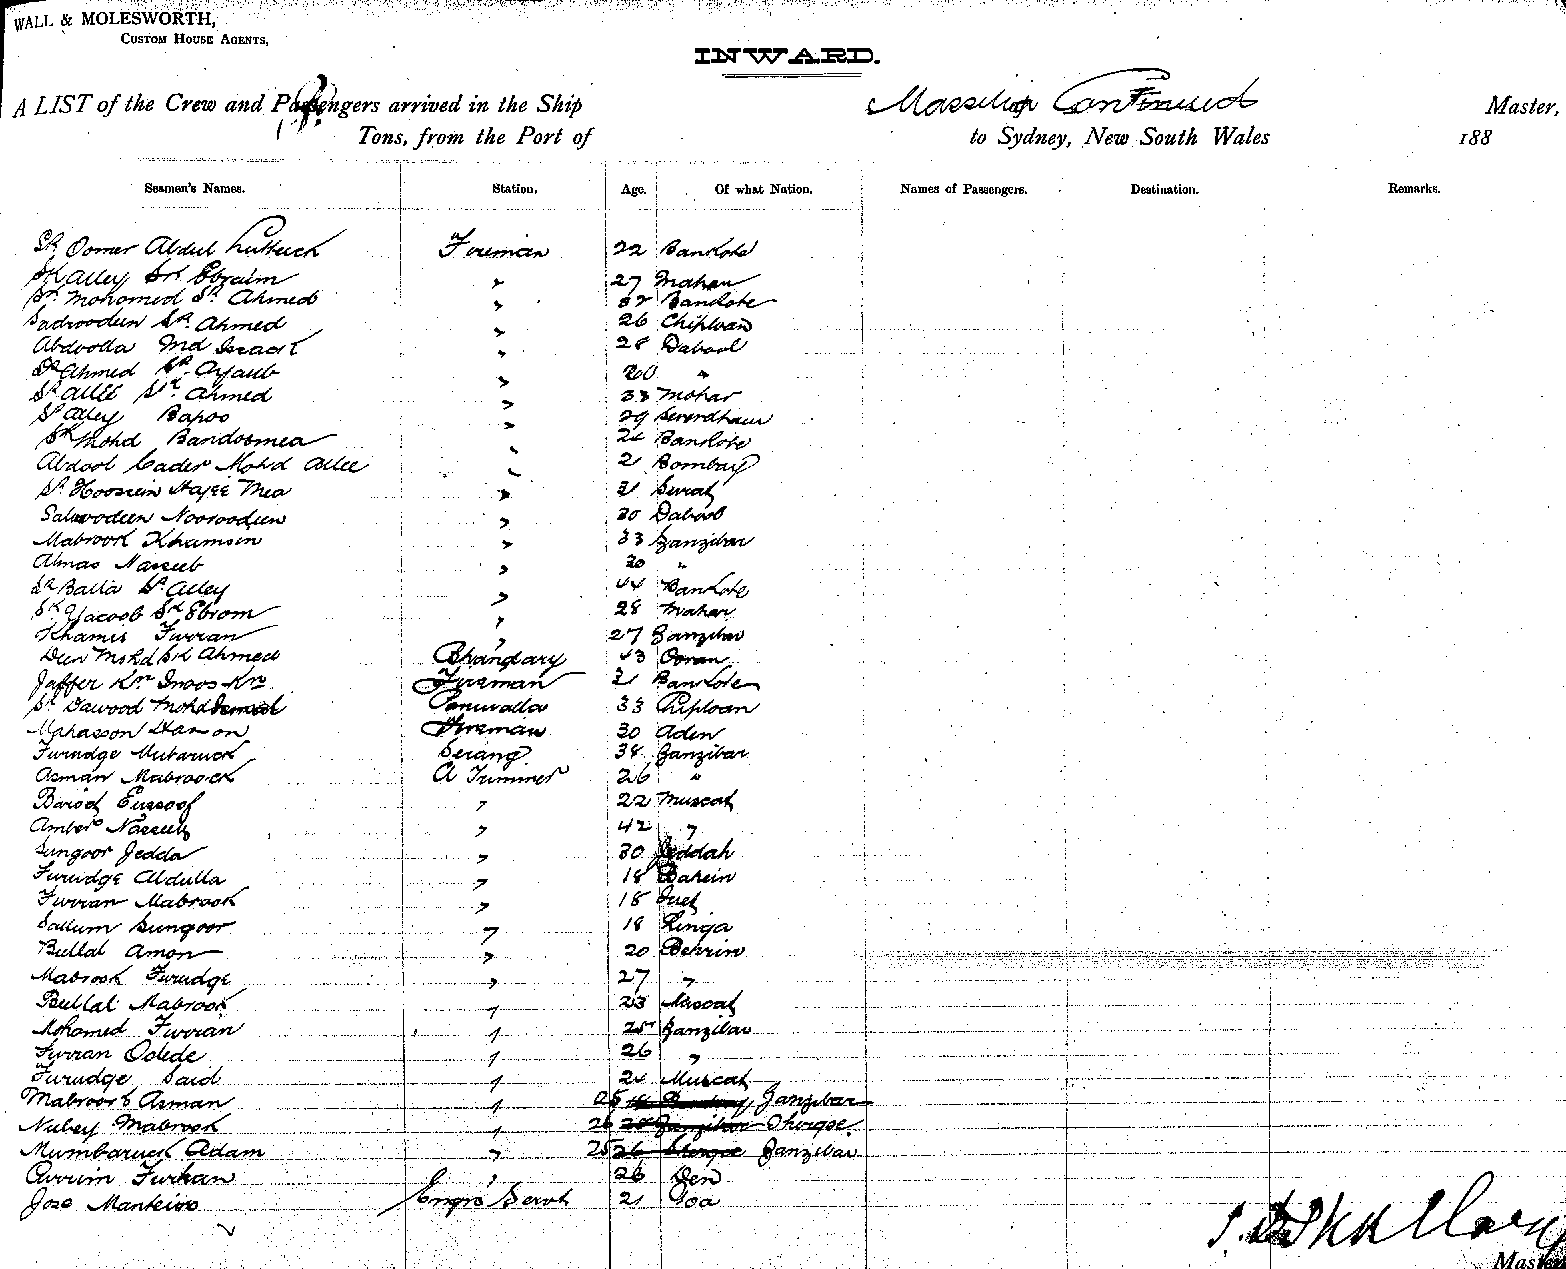 WALL & MOLESWORTH,
CUSTOM HOUSE AGENTS,
INWARD.
A LIST of the Crew and Passengers arrived in the Ship Massilia Continued Master,
Tons, from the Port of to Sydney, New South Wales 188
Seamen's Names. Station. Age. Of what Nation. Names of Passengers. Destination. Remarks.
Sk Oomer Abdul Fireman 22 Bankote
Sk Alley Sk Ebraim " 27 Mahar
Sk Mohomed Sk Ahmed " 32 Bankote
Sadroodeen Sk Ahmed " 26 Chiploan
Abdoolla Md Issack " 28 Dabool
Sk Ahmed Sk Ayaub " 20 "
Sk Allee Sk Ahmed " 33 Mohar
Sk Alley Bapoo " 29
Sk Mohd Bandoomea " 24 Bankote
Abdool Cader Mohd Allee " 21 Bombay
Sk Hoosein Hajee Mea " 31 Surat
Nooroodeen " 30 Dabool
Mabrook Khamsin " 33 Zanzibar
Almas Nasseeb " 30 "
Sk Balla Sk Alley " 44 Bankote
Sk Yacoob Sk Ebrom " 28 Mahar
Khamis Furran " 27 Zanzibar
Deen Mohd Sk Ahmed Bhandary 43 Ooran
Jaffer Kn Kn Fireman 21 Bankote
Sk Dawood Mohd Paniwalla 33 Chiploan
Fireman 30 Aden
Furudge Mubaruck Serang 38 Zanzibar
Asman Mabroock A Trimmer 26 "
Eussoof " 22 Muscat
Amber Nasseeb " 42 "
Sungoor Jedda " 30 Jeddah
Furudge Abdulla " 18 Bahein
Furran Mabrook " 18
Sallum Sungoor " 18 Linga
Bullal Amon " 20 Behrin
Mabrook Furudge " 27 "
Bullal Mabrook " 23 Muscat
Mohamed Furran " 25 Zanzibar
Furran Oolede " 26 "
Furudge Said " 24 Muscat
Mabrook Asman " 25 Zanzibar
Nubey Mabrook " 26 Zanzibar
Mumbaruck Adam " 25 26 Zanzibar
Currim Furhan " 26
Joze Manteiro Engrs Servt 21 Goa
Master